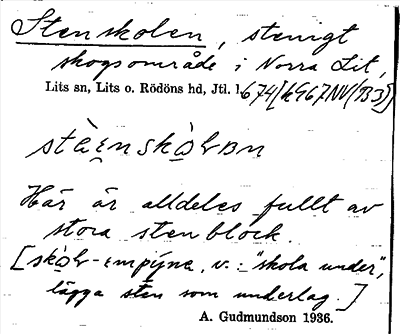 Stenskolen, stenigt
skogsområde i Norra Lit,
Lits sn, Lits o. Rödöns hd, Jtl. 1674[k967NV(B3)]
stèn sko̱ɫʙn
Här är alldeles fullt av
stora stenblock.
[sko̱ɫ-ɪmpýnə, v.: "skola under",
lägga sten som underlag.]
A. Gudmundson 1936.